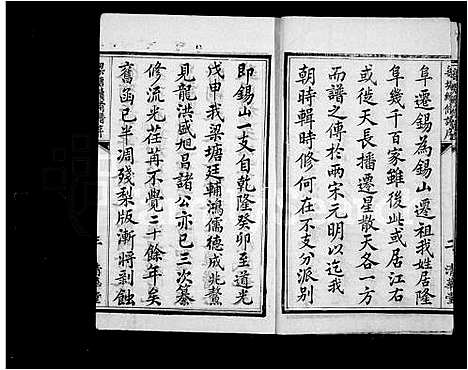 阜遷錫為錫山遷祖我姓居隆
阜幾千百家雖後此或居江右
或徙天長播遷星散天各一方
而譜之傳於兩宋元明以迄我
朝時輯時修何在不支分派別
即錫山一支自乾隆癸卯至道光
戊申我梁塘廷輔鴻儒德成兆鰲
見龍洪盛旭昌諸公亦已三次纂
修流光荏苒不覺三十餘年矣
舊函已半凋殘梨版漸將剝蝕